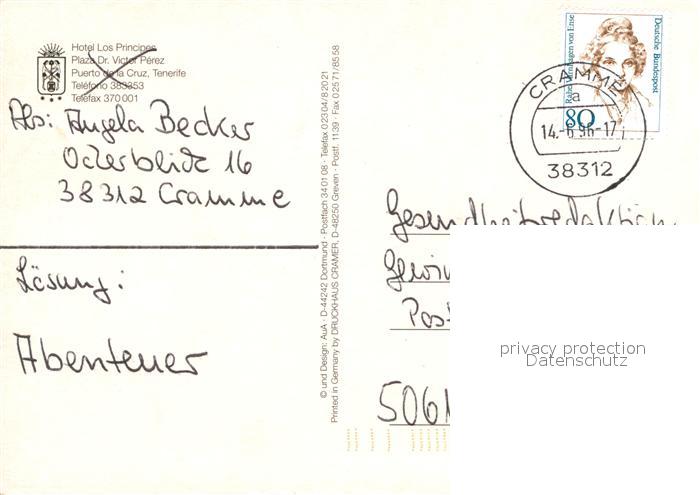 Hotel Los Principes
Plaza Dr. Victor Pérez
Puerto de la Cruz, Tenerife
Teléfono 383353
Telefax 370001
Abs: Angela Becker
Oderblick 16
38312 Cramme
Lösung:
Abenteuer
© und Design: AuA · D-44242 Dortmund · Postfach 34 01 08 · Telefax 0 23 04 / 8 20 21
Printed in Germany by DRUCKHAUS CRAMER, D-48250 Greven · Postf. 1139 · Fax 0 25 71 / 85 58
Deutsche Bundespost
Rahel Varnhagen von Ense
80
CRAMME
a
14.-6.96-17
38312
Gesundheitsredaktion
Gewin
Post
506
privacy protection
Datenschutz